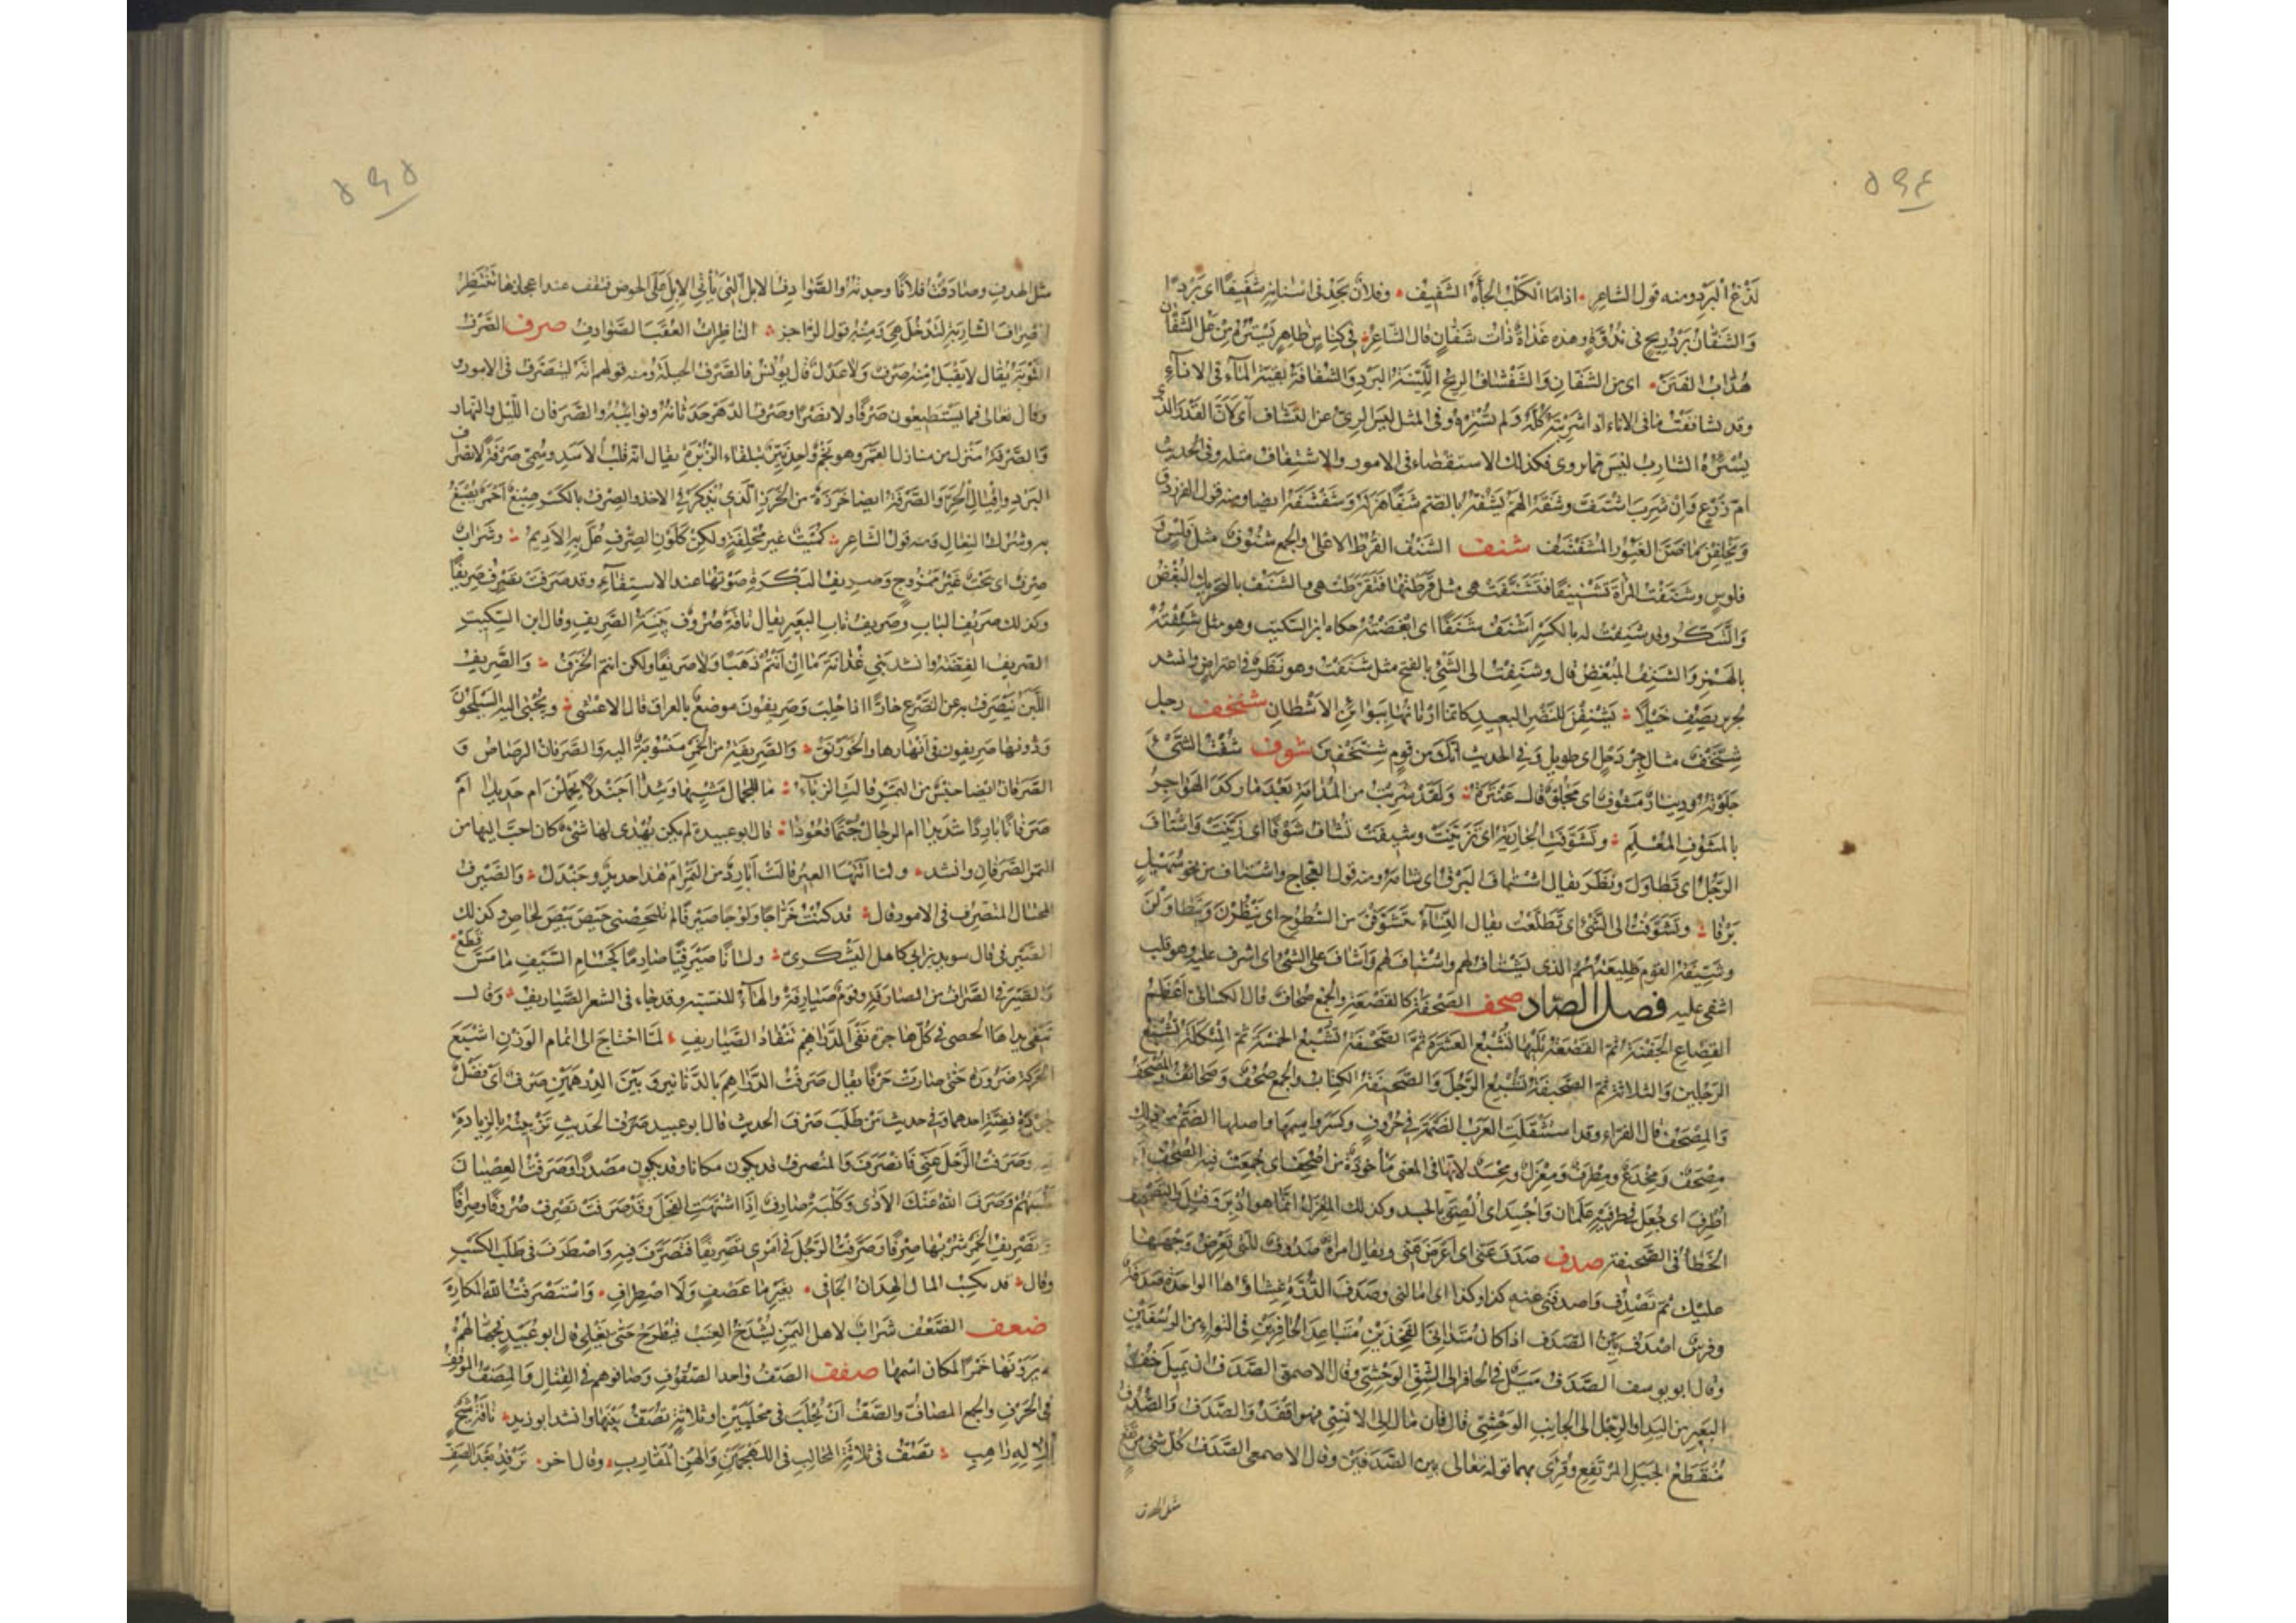 ٥٩٤
لَذْعُ الْبَرْدِ ومنه قول الشاعر اذا ما الكَلْبُ الجأَهُ الشَّفِيفُ وفلان يَجِدُ فى اسنانه شَفِيفًا اى بَرْدًا
وَالشَّفَّانُ بَرْدُ رِيحٍ فى نُدُوَّةٍ وهذه غَدَاةٌ ذَاتُ شَفَّانٍ قال الشاعر فى كِنَاسٍ ظاهِرٍ يَسْتُرُهُ مِنْ عَلُ الشَّفَّانُ
هُدَّابُ الفَنَنْ اى من الشَّفَّانِ وَالشَّفْشَافُ الرِيحُ اللَّيِّنَةُ البَرْدِ وَالشُّفَافَةُ بَقِيَّةُ المَآءِ فى الانآءِ
وقد تشافَفْتُ ما فى الاناء اذا شَرِبْتَهُ كُلَّهُ وَلم تُسْئِرْهُ وفى المثل ليس الرِىُّ عن التَّشَافِّ اى لاَنَّ القَدْرَ الذى
يُسْئِرُهُ الشارِبُ ليس مما يروى فكذلك الاستقصاء فى الامور والاشتفاف مثله وفى الحديث
ام زرع وَاِنْ شَرِبَ اشْتَفَّ وشَفَّهُ الهَمُّ يَشُفُّهُ بالضم شَفًّا هَزَلَهُ وَشَفْشَفَهُ ايضا ومنه قول الفرزدق
وَيُخْلِفْنَ مَا ظَنَّ الغَيُورُ المُشَفْشَفُ شنف الشَّنْفُ القُرْطُ الاعلى والجمع شُنُوفٌ مثل فلس و
فلوسٍ وشَنَّفْتُ المرأة تَشْنِيفًا فتَشَنَّفَتْ هى مثل قَرَّطْتُها فَتَقَرَّطَتْ هى والشَّنَفُ بالتحريك البُغْضُ
وَالتَّنَكُّر وقد شَنِفْتُ له بالكسْرِ اَشْنَفُ شَنَفًا اى اَبْغَضْتُهُ حكاه ابن السكيت وهو مثل شَئِفْتُهُ
بالهَمْزِ وَالشَّنِفُ المُبْغِضُ قال وشَنَفْتُ الى الشَّىْءِ بالفتح مثل شَفَنْتُ وهو نَظَرٌ فى اعتراضٍ وانشد
لجرير يَصِفُ خَيْلًا يَشْنِفْنَ للنَّظَرِ البعيد كانَّما ارنانُها ببَوائِنِ الاَشْطانِ شنخف رجل
شِنَّخْفٌ مثال جِرْدَحْلٍ اى طويل وَفى الحديث انَّك من قومٍ شِنَّخْفِينَ شوف شُفْتُ الشَّىْءَ
جَلَوْتُهُ ودينارٌ مَشُوفٌ اى مَجْلُوٌّ قال عنترة وَلَقَدْ شَرِبْتُ من المُدَامَةِ بَعْدَ مَا رَكَدَ الهَوَاجِرُ
بالمَشُوفِ المُعْلَمِ وتَشَوَّفَتِ الجارِيَةُ اى تَزَيَّنَتْ وشِيفَتْ تُشَافُ شَوْفًا اى زُيِّنَتْ وَاشْتَافَ
الرَّجُلُ اى تَطَاوَلَ وَنَظَرَ يقال اشْتَافَ البَرْقَ اى شَامَهُ ومنه قول العجاج واشْتَافَ من نحو سُهَيْلٍ
بَرْقَا وتَشَوَّفْتُ الى الشَّىْءِ اى تَطَلَّعْتُ يقال النِّسَآءُ يَتَشَوَّفْنَ من السُّطُوحِ اى يَنْظُرْنَ وَيَتَطَاوَلْنَ
وشَيِّفَةُ القوم طَلِيعَتُهُمُ الذى يَشْتَافُ لهم واشْتَافَ لهم وَاَشَافَ على الشَّىْءِ اى اشرف عليه وهو قلب
اشفى عليه فصل الصّاد صحف الصَّحْفَةُ كالقَصْعَةِ والجَمْعُ صِحَافٌ قال الكسائى اَعْظَمُ
القِصَاعِ الجَفْنَةُ ثم القَصْعَةُ تَلِيهَا تُشْبِعُ العَشَرَةَ ثُمَّ الصَّحْفَةُ تُشْبِعُ الخمسة ثم المِئْكَلَةُ تُشْبِعُ
الرَّجُلَيْنِ وَالثلاثة ثم الصُّحَيْفَةُ تُشْبِعُ الرَّجُلَ وَالصَّحِيفَةُ الكِتَابُ والجمع صُحُفٌ وَصَحَائِفُ والمُصْحَفُ
وَالمِصْحَفُ قال الفرّاء وقد استثقلتِ العَرَبُ الضَّمَّةَ فى حُرُوفٍ وكسَرُوا مِيمَها واصلها الضَّمُّ من ذلك
مِصْحَفٌ وَمِخْدَعٌ ومِطْرَفٌ وَمِغْزَلٌ ومِجْسَدٌ لانها فى المعنى مَأْخُوذَةٌ من اُصْحِفَ اى جُمِعَتْ فيه الصُّحُفُ
اُطْرِفَ اى جُعِلَ فى طرفيْهِ عَلَمَانِ وَاُجْسِدَ اى اُلْصِقَ بالجسد وكذلك المِغْزَلُ انَّما هو اُدِيرَ وَفُتِلَ والتَّصْحِيفُ
الخَطأُ فى الصَّحِيفَةِ صدف صَدَفَ عَنِّى اى اَعْرَضَ عَنِّى ويقال امرأةٌ صَدُوفٌ للتى تَعْرِضُ وَجْهَهَا
عليك ثم تَصْدِفُ وَاصدفنى عنه كذا وكذا اى امالنى وصَدَفَ الدُّرَّةِ غِشاؤها الواحدة صَدَفَةٌ
وفرسٌ اَصْدَفُ بَيِّنُ الصَّدَفِ اذا كان مُتَدانِىَ الفَخِذَيْنِ مُتَبَاعِدَ الحَافِرَيْنِ فى التواءٍ من الرُسْغَيْنِ
وقال ابو يوسف الصَّدَفُ مَيَلٌ فى الحافر الى الشِقِّ الوَحْشِىِّ وقال الاصمعى الصَّدَفُ ان يَمِيلَ خُفُّ
البَعِيرِ من اليَدِ او الرِّجْلِ الى الجانِبِ الوَحْشِىِّ قال فان مَال الى الاِنْسِىِّ فهو اَقْفَدُ وَالصَّدَفُ وَالصُّدُفُ
مُنْقَطَعُ الجَبَلِ المُرْتَفِعِ وقُرِئَ بهما قوله تعالى بين الصَّدَفَيْنِ وقال الاصمعى الصَّدَفُ كلّ شئ مرتفع
مثل الهدف
٥٩٥
مثل الهدف وصَادَفْتُ فلانًا وجدتُهُ والصَّوَادِفُ الابل الَّتِى تَأْتِى الابل على الحوض فتقف عند اعجازها تَنْتَظِرُ
انصراف الشاربة لتَدْخُلَ هِىَ وَمِنْهُ قول الراجز الناظِرَاتُ العُقَبَ الصَّوَادِفُ صرف الصَّرْفُ
التَّوْبَةُ يُقال لا يُقْبَلُ مِنْه صَرْفٌ وَلا عَدْلٌ قال يُونُسُ فالصَّرْفُ الحيلَةُ ومنه قولهم انَّهُ ليتصَرَّفُ فى الامور
وقال تعالى فما يَسْتَطِيعُونَ صَرْفًا ولا نَصْرًا وصَرْفُ الدّهْرِ حَدَثَانُهُ ونوائِبُهُ والصَّرْفانِ اللَّيْلُ والنَّهارُ
وَالصَّرْفَةُ مَنْزِلٌ من منازل القَمَرِ وهو نَجْمٌ وَاحِدٌ نَيِّرٌ بتلقاء الزُبْرَةِ يقال انّه قَلْبُ الاَسَدِ وسُمِّىَ صَرْفَةً لانْصِرَافِ
البَرْدِ واِقْبالِ الحَرِّ وَالصَّرْفَةُ ايضا خَرَزَةٌ من الخَرَزِ الَّذى تُذْكَرُ فى الاُخَذِ والصِرْفُ بالكَسْرِ صِبْغٌ اَحْمَرُ يُصْبَغُ
به شُرُكُ النِعالِ ومنه قول الشاعر كُمَيْتٌ غير مُحْلِفَةٍ ولكِنْ كَلَوْنِ الصِّرْفِ عُلَّ بِهِ الاَدِيمُ وشَرَابٌ
صِرْفٌ اى بَحْتٌ غَيْرُ مَمْزُوجٍ وَصَرِيفُ البَكَرَةِ صَوْتُها عند الاستِقَآءِ وقد صَرَفَتْ تَصْرِفُ صَرِيفًا
وكذلك صَرِيفُ البَابِ وصَرِيفُ نابِ البَعِيرِ يقال ناقةٌ صَرُوفٌ بَيِّنَةُ الصَّرِيفِ وقال ابن السِكِيتِ
الصَرِيفُ الفِضَّةُ وانشد بَنِى غُدَانَةَ مَا اِنْ اَنْتُمُ ذَهَبًا وَلا صَرِيفًا ولكن انتم الخَزَفُ وَالصَّرِيفُ
اللَّبَنُ يَنْصَرِفُ به عن الضَّرْعِ حَارًّا اذا حُلِبَ وَصَرِيفُونَ موضعٌ بالعراق قال الاعشى ويُجْبَى اليه السَّيْلَحُونَ
وَدُونَها صَرِيفُون فى اَنْهارها والخَوَرْنَقُ وَالصَّرِيفِيَّةُ من الخَمْرِ مَنْسُوبَةٌ اليه وَالصَّرَفَانُ الرصَاصُ و
الصَّرَفَانُ ايضا جِنْسٌ من التَّمْرِ قالت الزبآءُ ما للجِمالِ مَشْيِها وَئِيدًا اَجَنْدَلًا يَحْمِلْنَ ام حَدِيدَا اَمْ
صَرَفَانًا بَارِدًا شَدِيدَا ام الرِجالُ جُثَّمًا قُعُودَا قال ابو عبيدة لم يكن يُهْدَى لها شىْءٌ كان احبَّ اليها من
التمر الصَّرَفانِ وانشد ولمّا اَتَتْهَا العِيرُ قالَتْ اَبَارِدٌ من التَّمْرِ ام هٰذا حديدٌ وجَنْدَلُ وَالصَّيْرَفُ
المحتال المتصرِف فى الامور قال قد كُنْتُ خَرَّاجًا وَلُوجًا صَيْرَفًا لم تَلْتَحِصْنِى حَيْصَ بَيْصَ لحاصِ وكذلك
الصَّيْرَفِىُّ قال سويد بن ابى كاهل اليَشْكرىّ ولسانًا صَيْرَفِيًّا صارِمًا كَحُسَامِ السَّيْفِ مَا مَسَّ قَطَعْ
وَالصَّيْرَفِىُّ الصَّرَّافُ من المصارَفَةِ وقومٌ صَيَارِفَةٌ والهَآءُ للنسبة وقد جاء فى الشعر الصَّيَارِيفُ وقال
تَنْفِى يداها الحصى فى كُلِّ هاجِرَةٍ نَفْىَ الدَّرَاهِيمِ تَنْقَادُ الصَّيارِيفِ لمّا احْتَاجَ الى اتمام الوَزْنِ اشْبَعَ
الحَرَكَةَ ضَرُورَةً حَتَّى صارَتْ حَرْفًا يقال صَرَفْتُ الدَّراهِمَ بالدَّنانيرِ وَبَيْنَ الدِرهَمَيْنِ صَرْفٌ اى فَضْلٌ
لِجَوْدَةِ فِضَّةِ احدهما وَفى حديث مَنْ طَلَبَ صَرْفَ الحديثِ قال ابو عبيد صَرْفُ الحَدِيثِ تَزْيِينُهُ بالزِيادة
فيه وصَرَفْتُ الرَّجُلَ عَنِّى فَانْصَرَفَ وَالمُنْصَرَفُ قد يكون مكانا وقد يكون مَصْدَرًا وَصَرَفْتُ الصِبْيَانَ
قَلَبْتُهُمْ وَصَرَفَ اللهُ عَنْكَ الاَذَى وَكَلْبَةٌ صَارِفٌ اِذَا اشْتَهَتِ الفَحْلَ وَقَدْ صَرَفَتْ تَصْرِفُ صُرُوفًا وصِرَافًا
وَتَصْرِيفُ الخَمْرِ شُرْبُها صِرْفًا وَصَرَّفْتُ الرَّجُلَ فى اَمْرِى تَصْرِيفًا فَتَصَرَّفَ فِيهِ وَاصْطَرَفَ فى طَلَبِ الكَسْبِ
وقال قد يكسِبُ المالَ الهِدَانُ الجَافِى بِغَيْرِ مَا عَصْفٍ وَلَا اصْطِرَافِ وَاسْتَصْرَفْتُ الله المكارِهَ
ضعف الصَّعْفُ شَرَابٌ لاهل اليمَنِ يُشْدَخُ العِنَبُ فيُطْرَحُ حَتَّى يَغْلِى قال ابو عُبَيْدٍ فجُهَّالُهُمْ
لا يَرَوْنَها خَمْرًا لمكانِ اسْمِها صفف الصَّفُّ واحدُ الصُفُوفِ وَصَافُّوهُمْ فى القِتالِ وَالمَصَفُّ المَوْقِفُ
فى الحَرْبِ والجمع المصَافُّ والصَّفُّ اَنْ تُحْلَبَ فى مِحْلَبَيْنِ او ثلاثةٍ تَصُفُّ بَيْنَها وانشد ابو زيد ناقَةُ شَيْخٍ
للاِلٰهِ راهِبِ تَصُفُّ فى ثلاثةِ المَحَالِبِ فى اللَّهْجَمَيْنِ وَالهَنِ المُقَارِبِ وقال اخر تَرْفِدُ بَعْدَ الصَّفِّ